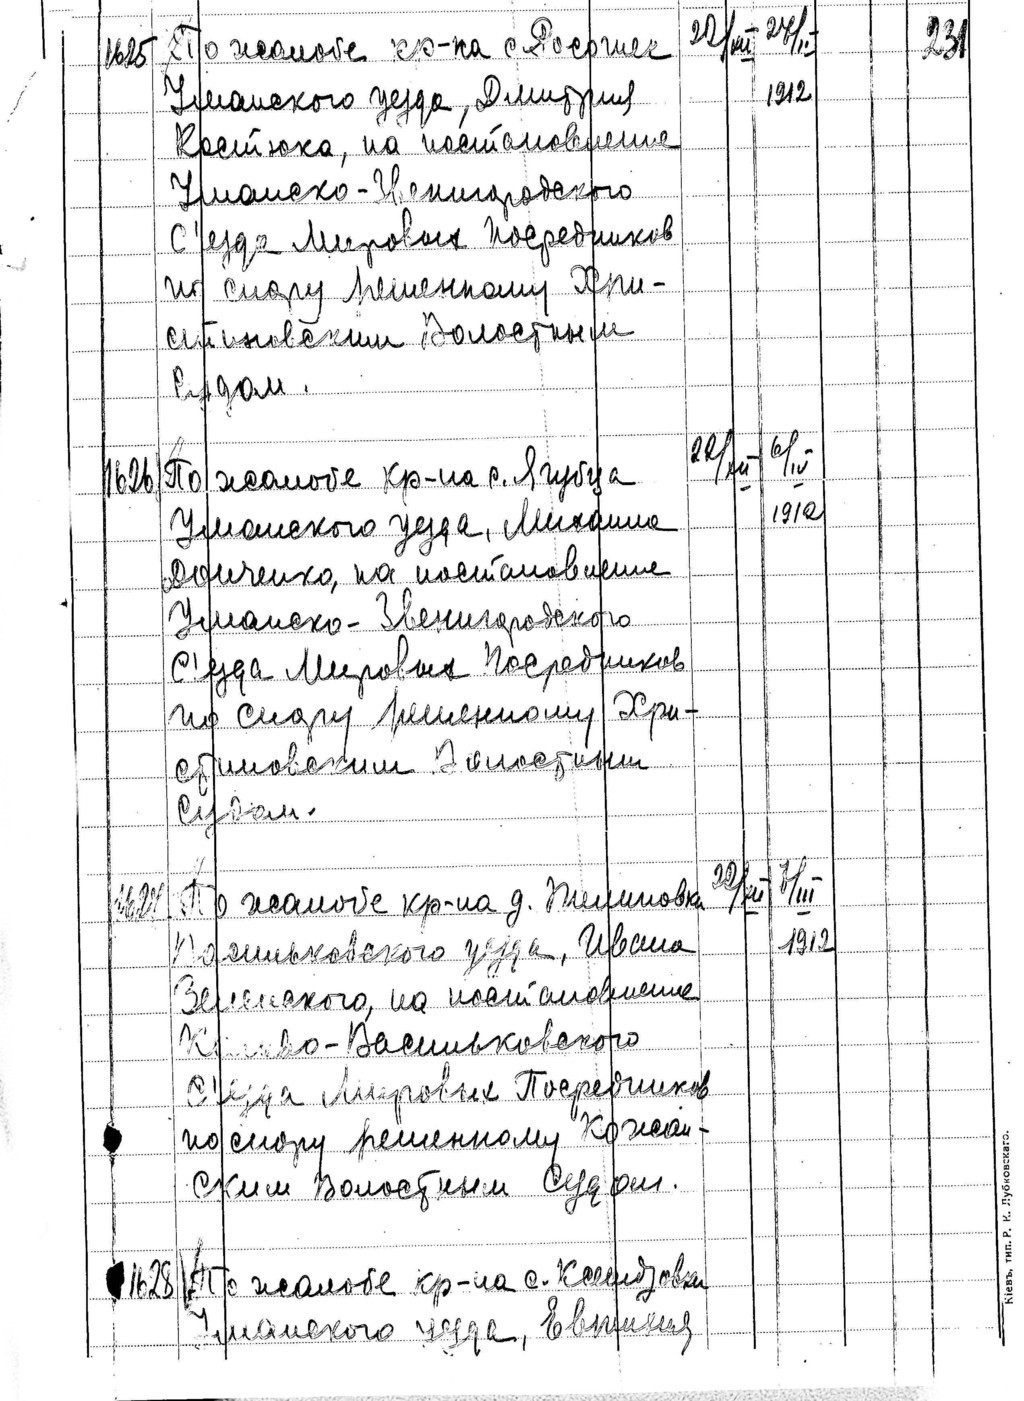 1625 По жалобе кр-на с. Росошек 22/XII 24/II 231
Уманского уезда, Дмитрия 1912
Костюка, на постановление
Уманско-Звенигородского
С'езда Мировых Посредников
по спору решенному Хри-
стиновским Волостным
Судом.
1626 По жалобе кр-на с. Ягубца 22/XII 6/IV
Уманского уезда, Михаила 1912
Донченко, на постановление
Уманско-Звенигородского
С'езда Мировых Посредников
по спору решенному Хри-
стиновским Волостным
Судом.
1627 По жалобе кр-на д. 22/XII 7/III
Васильковского уезда, Ивана 1912
Зеленского, на постановление
Киево-Васильковского
С'езда Мировых Посредников
по спору решенному Кожан-
ским Волостным Судом.
1628 По жалобе кр-на с. Ксендзовки
Уманского уезда, Евтихия
Кіевъ, тип. Р. К. Лубковскаго.